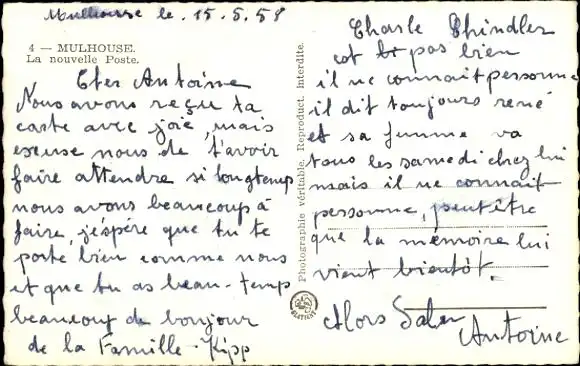 Mulhouse le. 15.5.58
4 — MULHOUSE.
La nouvelle Poste.
Cher Antoine
Nous avons reçu ta
carte avec joie, mais
excuse nous de t'avoir
faire attendre si longtemp
nous avons beaucoup à
faire, j'éspére que tu te
porte bien comme nous
et que tu as beau-temp
beaucoup de bonjour
de la Famille-Kipp
Photographie véritable. Reproduct. Interdite.
Charle Schindler
est pas bien
il ne connait personne
il dit toujours rené
et sa femme va
tous les samedi chez lui
mais il ne connait
personne, peut être
que la mémoire lui
vient bientôt.
Alors Salu
Antoine